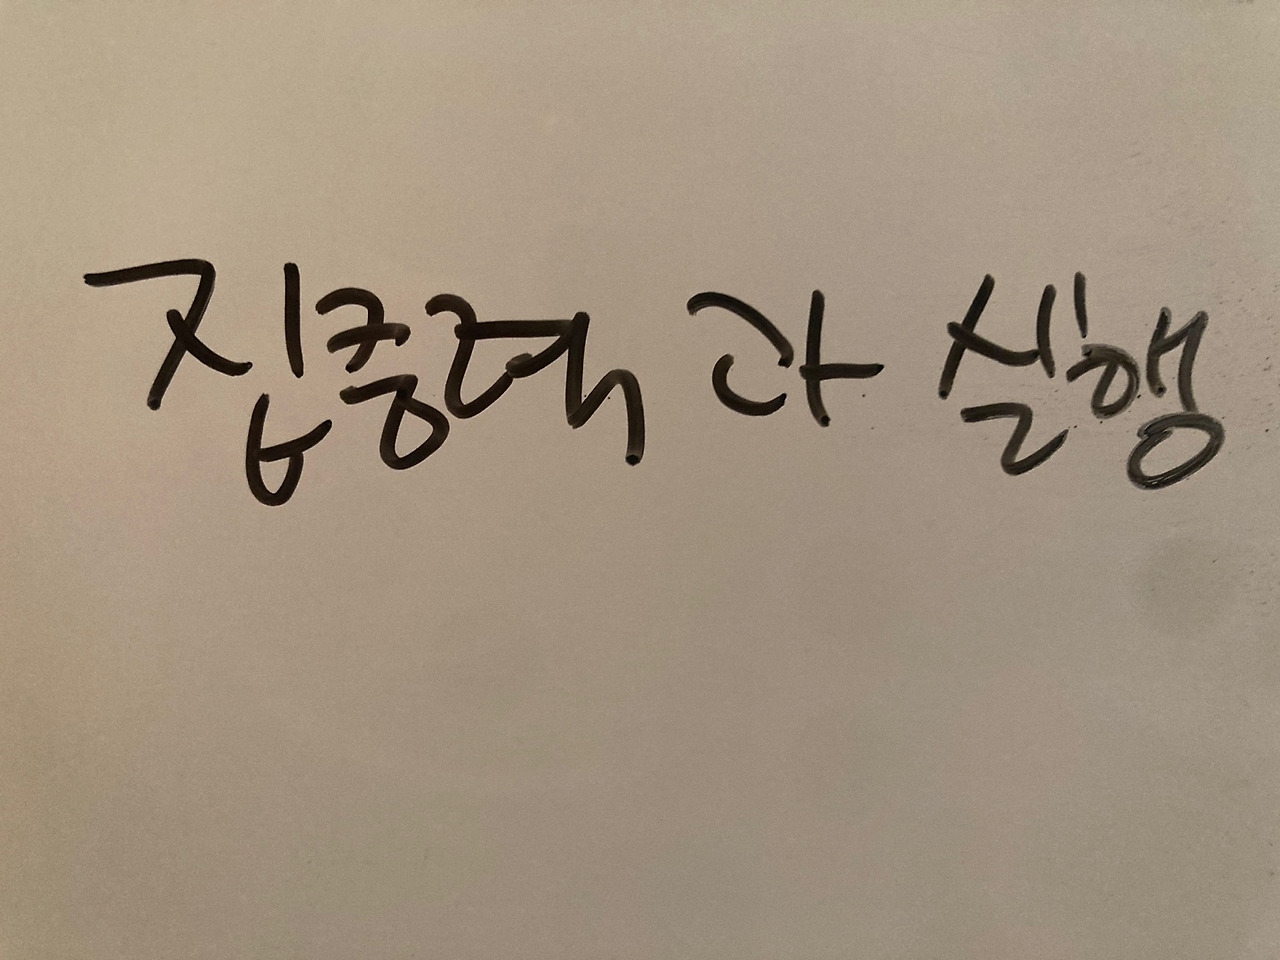 집중력 과 실행